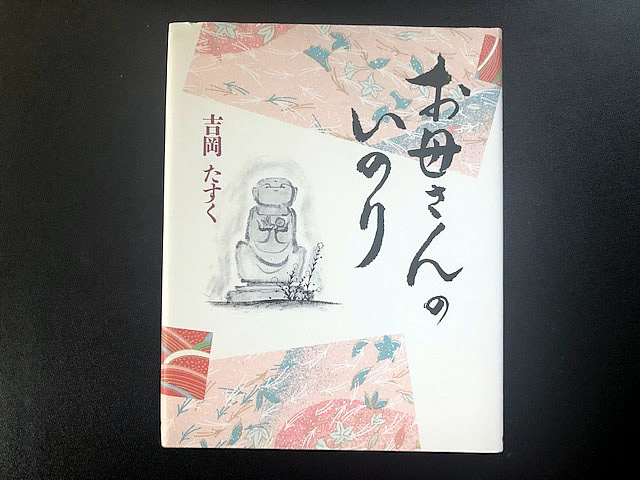 お母さんの
いのり
吉岡 たすく